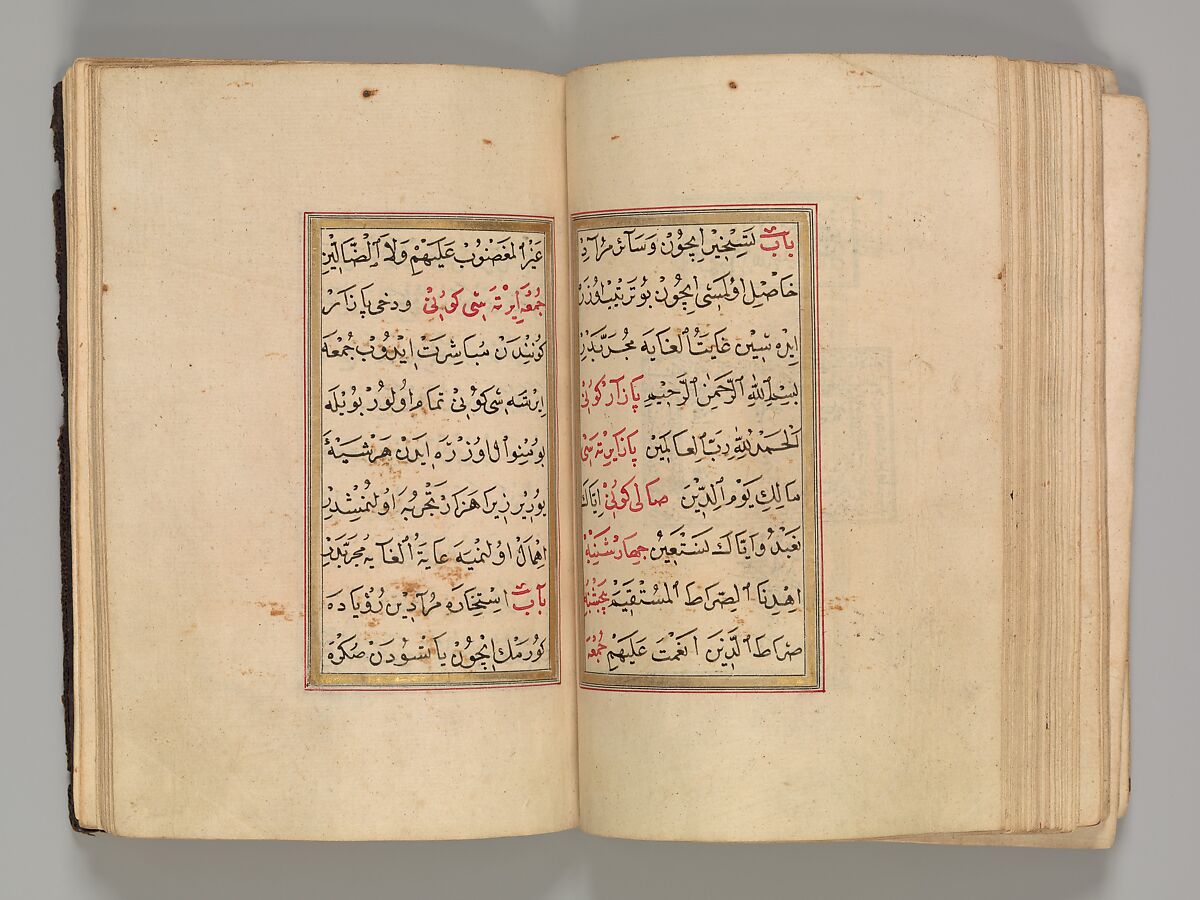 باب تَسْخِيرْ اِيچُونْ وَسَائِرْ مُرَادِ
حَاصِلْ اوُلمَسِى اِيچُونْ بُو تَرْتِيبْ اوُزَرَ
اِيدَه سِينْ غَايَتُ الْغَايَه مُجَرَّبَدِرْ
بِسْمِ اللّٰهِ الرَّحْمٰنِ الرَّحِيمِ پَازَارْ كُونِى
اَلْحَمْدُ لِلّٰهِ رَبِّ الْعَالَمِينَ پَازَارْ اِيرْتَه سِى
مَالِكِ يَوْمِ الدِّينِ صَالِى كُونِى اِيَّاكَ
نَعْبُدُ وَاِيَّاكَ نَسْتَعِينُ جِهَارْشَنْبِه
اِهْدِنَا الصِّرَاطَ الْمُسْتَقِيمَ پَنْجِشَنْبِه
صِرَاطَ الَّذِينَ اَنْعَمْتَ عَلَيْهِمْ جُمْعَه
غَيْرِ الْمَغْضُوبِ عَلَيْهِمْ وَلَا الضَّالِّينَ
جُمْعَه اِيرْتَه سِى كُونِى وَدَخِى پَازَارْ
كُونِنْدَنْ مُبَاشِرَتْ اِيدُوبْ جُمْعَه
اِيرْتَه سِى كُونِى تَمَامْ اوُلُورْ بُويْلَه
بُو مِنْوَالْ اوُزْرَه اِيدَنْ هَرْ شَيْئَه
يُورِيرْ زِيرَا هَزَارْ تَجْرُبَه اوُلِنْمِشْدِرْ
اِهْمَالْ اوُلِنْمَيَه غَايَةُ الْغَايَه مُجَرَّبَدِرْ
بَابْ اِسْتِخَارَه مُرَادِينْ رُؤْيَادَه
كُورْمَكْ اِيچُونْ يَاتْسُودَنْ صَكْرَه